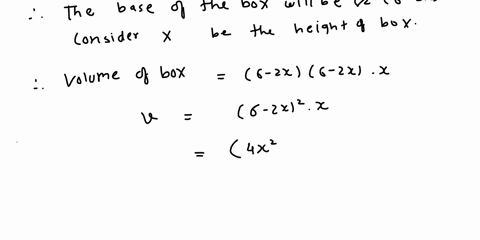 ∴ The base of the box will be
Consider x be the height of box.
∴ Volume of box = (6-2x) (6-2x) . x
V = (6-2x)² . x
= (4x²